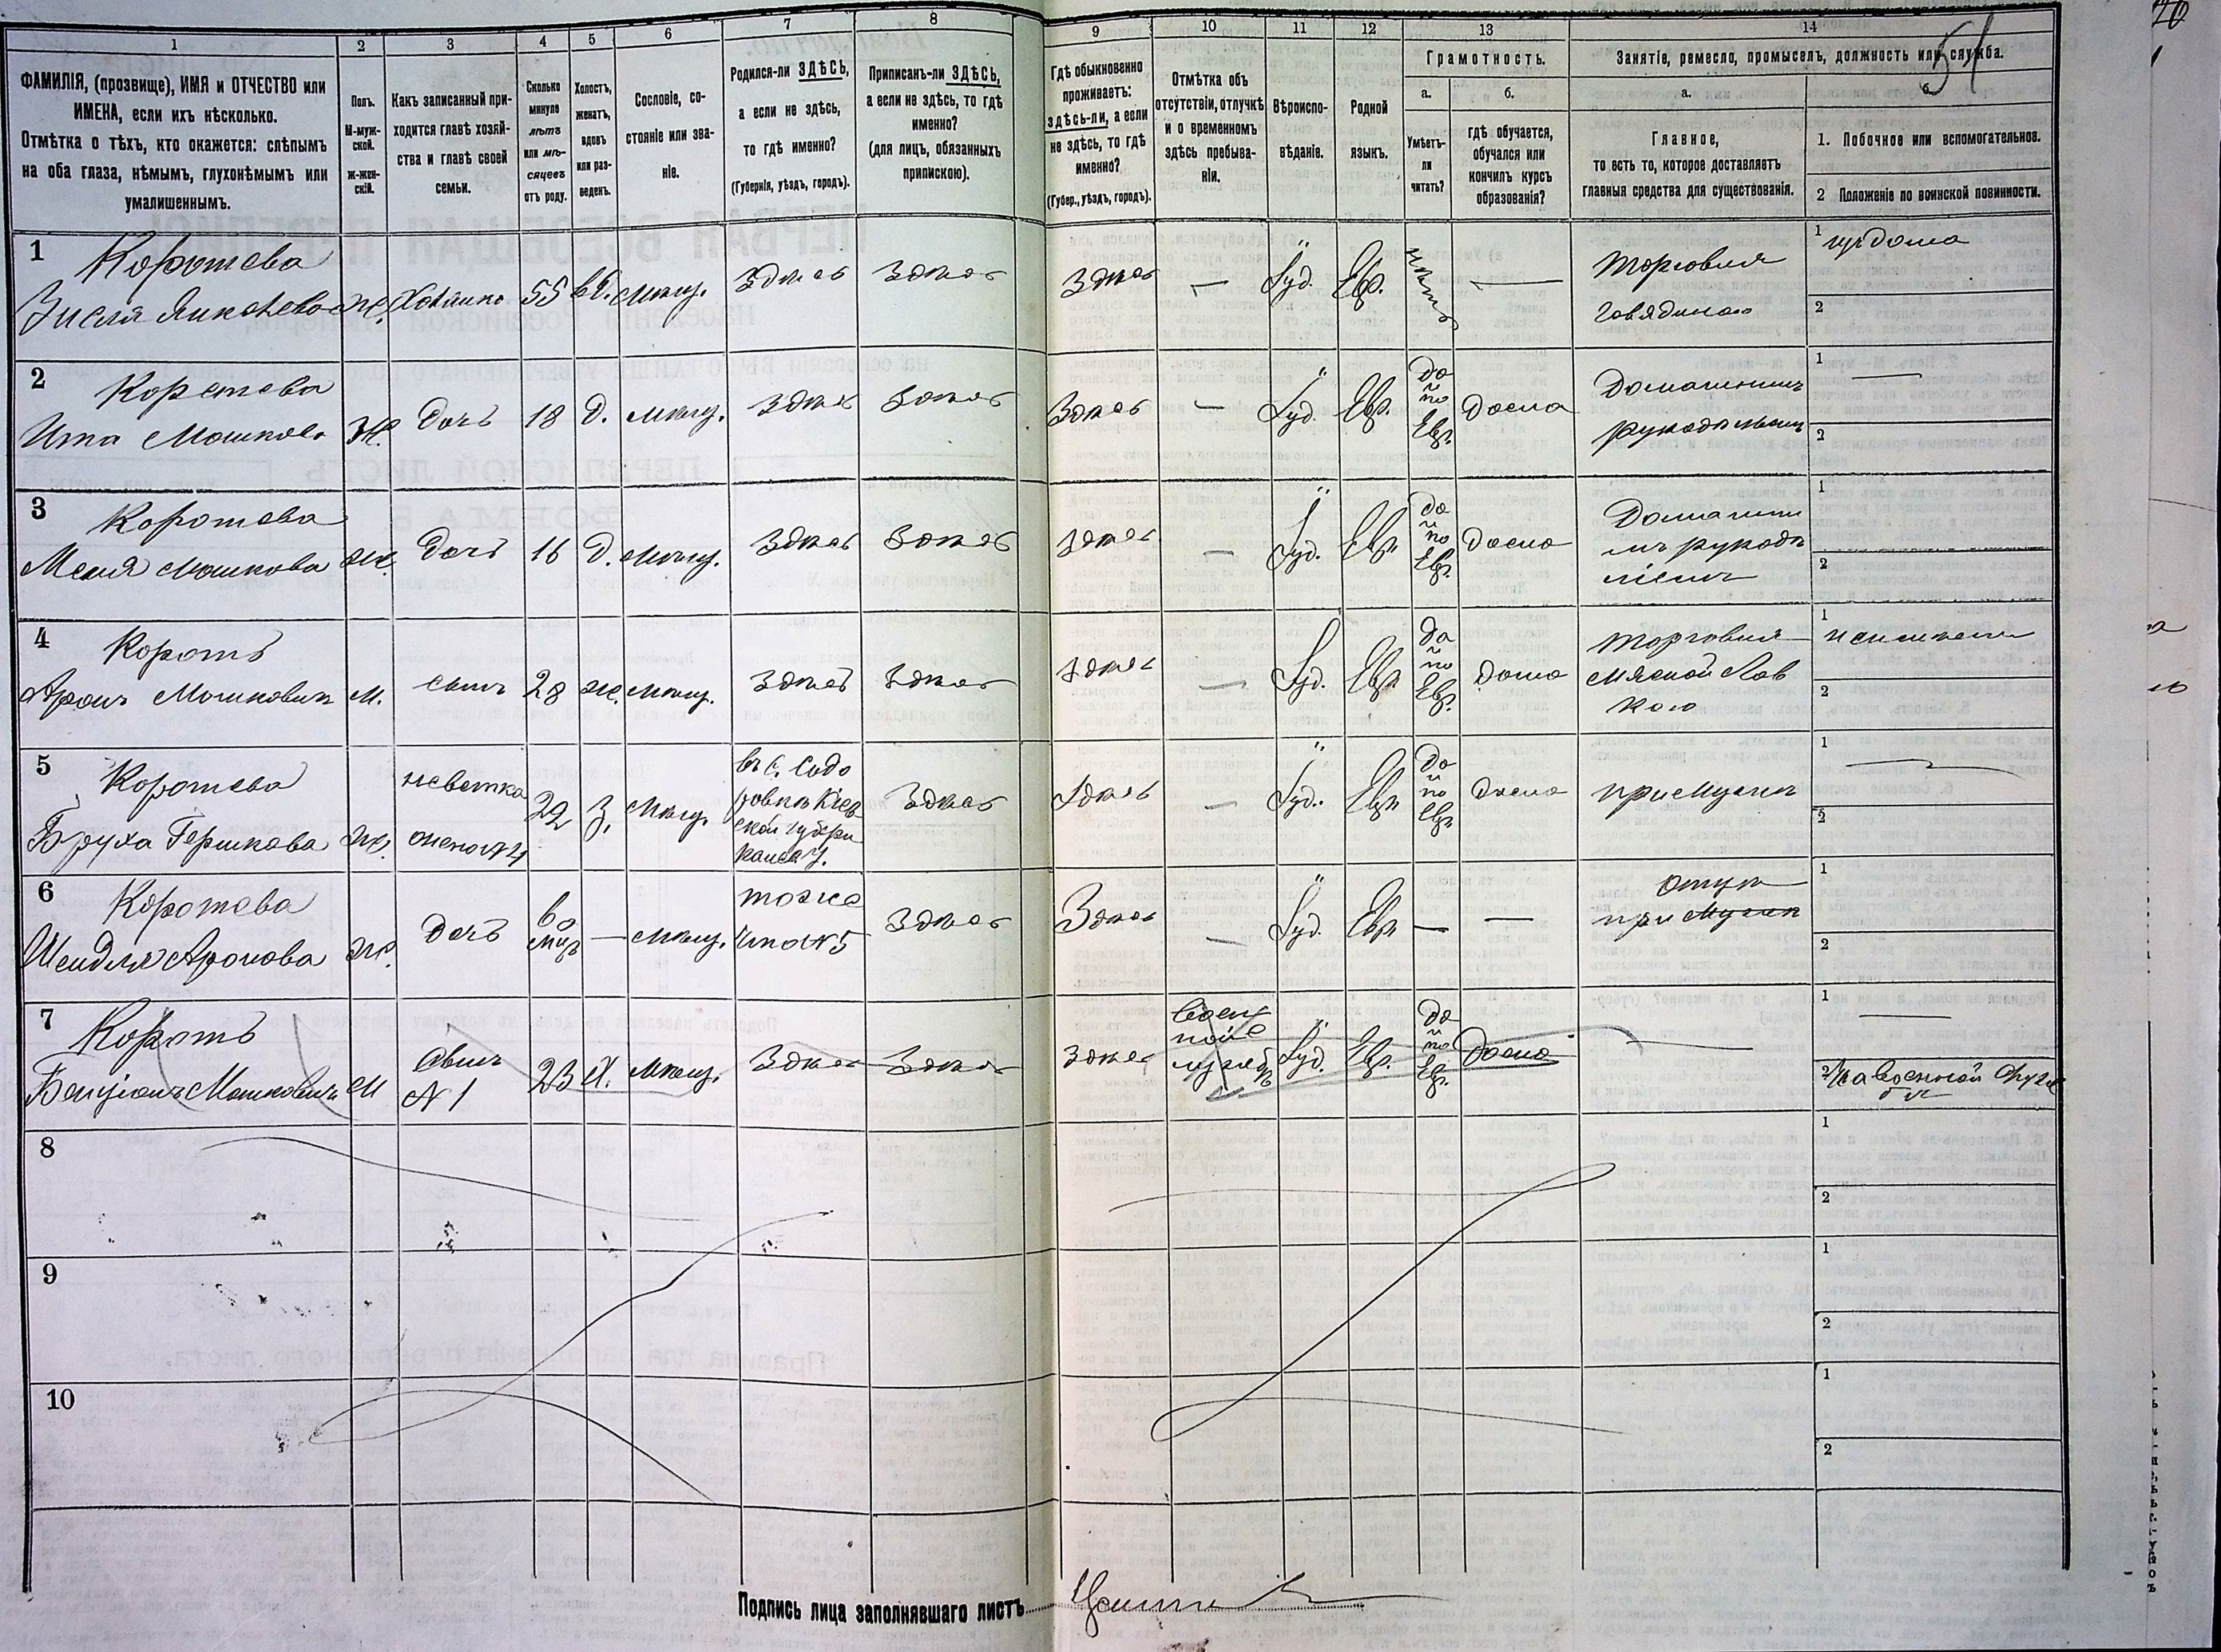 1 2 3 4 5 6 7 8 9 10 11 12 13 14
51
ФАМИЛІЯ, (прозвище), ИМЯ и ОТЧЕСТВО или
ИМЕНА, если ихъ нѣсколько.
Отмѣтка о тѣхъ, кто окажется: слѣпымъ
на оба глаза, нѣмымъ, глухонѣмымъ или
умалишеннымъ.
Полъ.
М-муж-
ской.
Ж-жен-
скій.
Какъ записанный при-
ходится главѣ хозяй-
ства и главѣ своей
семьи.
Сколько
минуло
лѣтъ
или мѣ-
сяцевъ
отъ роду.
Холостъ,
женатъ,
вдовъ
или раз-
веденъ.
Сословіе, со-
стояніе или зва-
ніе.
Родился-ли ЗДѢСЬ,
а если не здѣсь,
то гдѣ именно?
(Губернія, уѣздъ, городъ).
Приписанъ-ли ЗДѢСЬ,
а если не здѣсь, то гдѣ
именно?
(для лицъ, обязанныхъ
припискою).
Гдѣ обыкновенно
проживаетъ:
здѣсь-ли, а если
не здѣсь, то гдѣ
именно?
(Губер., уѣздъ, городъ).
Отмѣтка объ
отсутствіи, отлучкѣ
и о временномъ
здѣсь пребыва-
ніи.
Вѣроиспо-
вѣданіе.
Родной
языкъ.
Грамотность.
а.
Умѣетъ-
ли
читать?
б.
гдѣ обучается,
обучался или
кончилъ курсъ
образованія?
Занятіе, ремесло, промыселъ, должность или служба.
а.
Главное,
то есть то, которое доставляетъ
главныя средства для существованія.
б.
1. Побочное или вспомогательное.
2 Положеніе по воинской повинности.
1 Коротева
Зисля Янкелева Ж. Хозяйка 55 вд. Мѣщ. Здѣсь Здѣсь
Здѣсь — Іуд. Евр. нѣтъ — Торговля
говядиною
1
2
2 Коротева
Ита Мошкова Ж. Дочь 18 Д. Мѣщ. Здѣсь Здѣсь
Здѣсь — Іуд. Евр. да
и
по
Евр. Дома Домашнимъ
рукодѣльемъ
1 —
2
3 Коротева
Меня Мошкова Ж. Дочь 16 Д. Мѣщ. Здѣсь Здѣсь
Здѣсь — Іуд. Евр. да
и
по
Евр. Дома Домашни
мъ рукодѣ
ліемъ
1
2
4 Коротъ
Аронъ Мошковичъ М. сынъ 28 ж. Мѣщ. Здѣсь Здѣсь
Здѣсь — Іуд. Евр. да
и
по
Евр. Дома Торговля
мясной лав
кою
1
2
5 Коротева
Бруха Гершкова Ж. невѣстка
жена №4 22 З. Мѣщ. въ с. Сидо
ровкѣ Кіев-
ской губерн
Канев у. Здѣсь
Здѣсь — Іуд. Евр. да
и
по
Евр. Дома при мужѣ
1 —
2
6 Коротева
Шендля Аронова Ж. Дочь 6
мѣс. — Мѣщ. тоже
что №5 Здѣсь
Здѣсь — Іуд. Евр. — — при отцѣ
1
2
7 Коротъ
Бенціонъ Мошковичъ М сынъ
№ 1 23 Х. Мѣщ. Здѣсь Здѣсь
Здѣсь Военной
службѣ Іуд. Евр. да
и
по
Евр. Дома —
1 —
2 На военной службѣ
8
1
2
9
1
2
10
1
2
Подпись лица заполнявшаго листъ